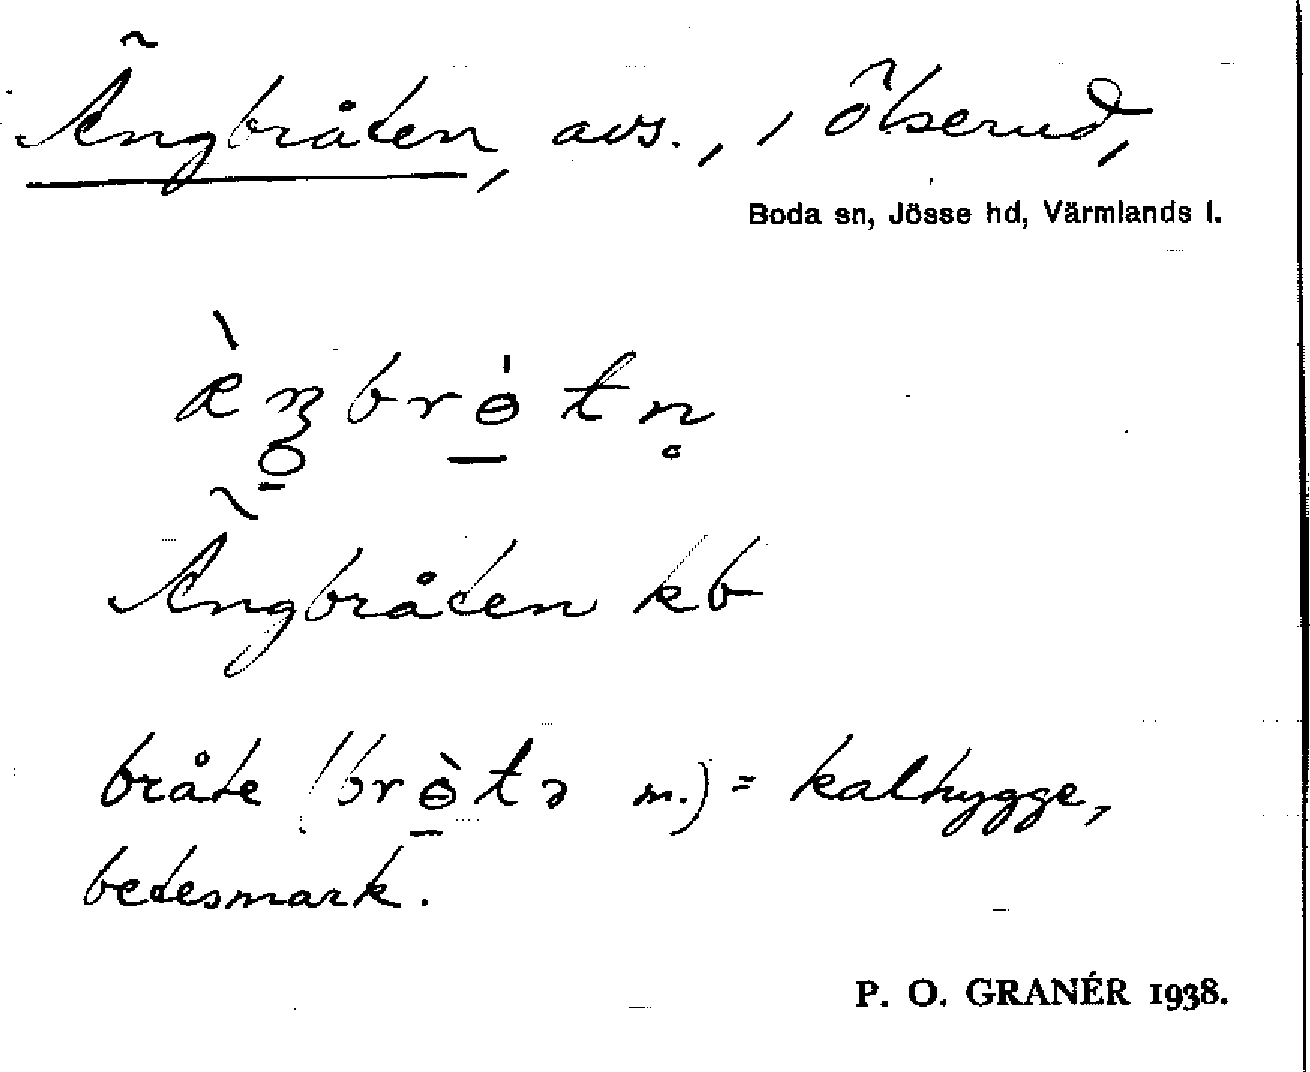 Ängbråten, avs., i Ölserud,
Boda sn, Jösse hd, Värmlands l.
Ängbråten kb
bråte (bròtə m.) = kalhygge,
betesmark.
P. O. GRANÉR 1938.